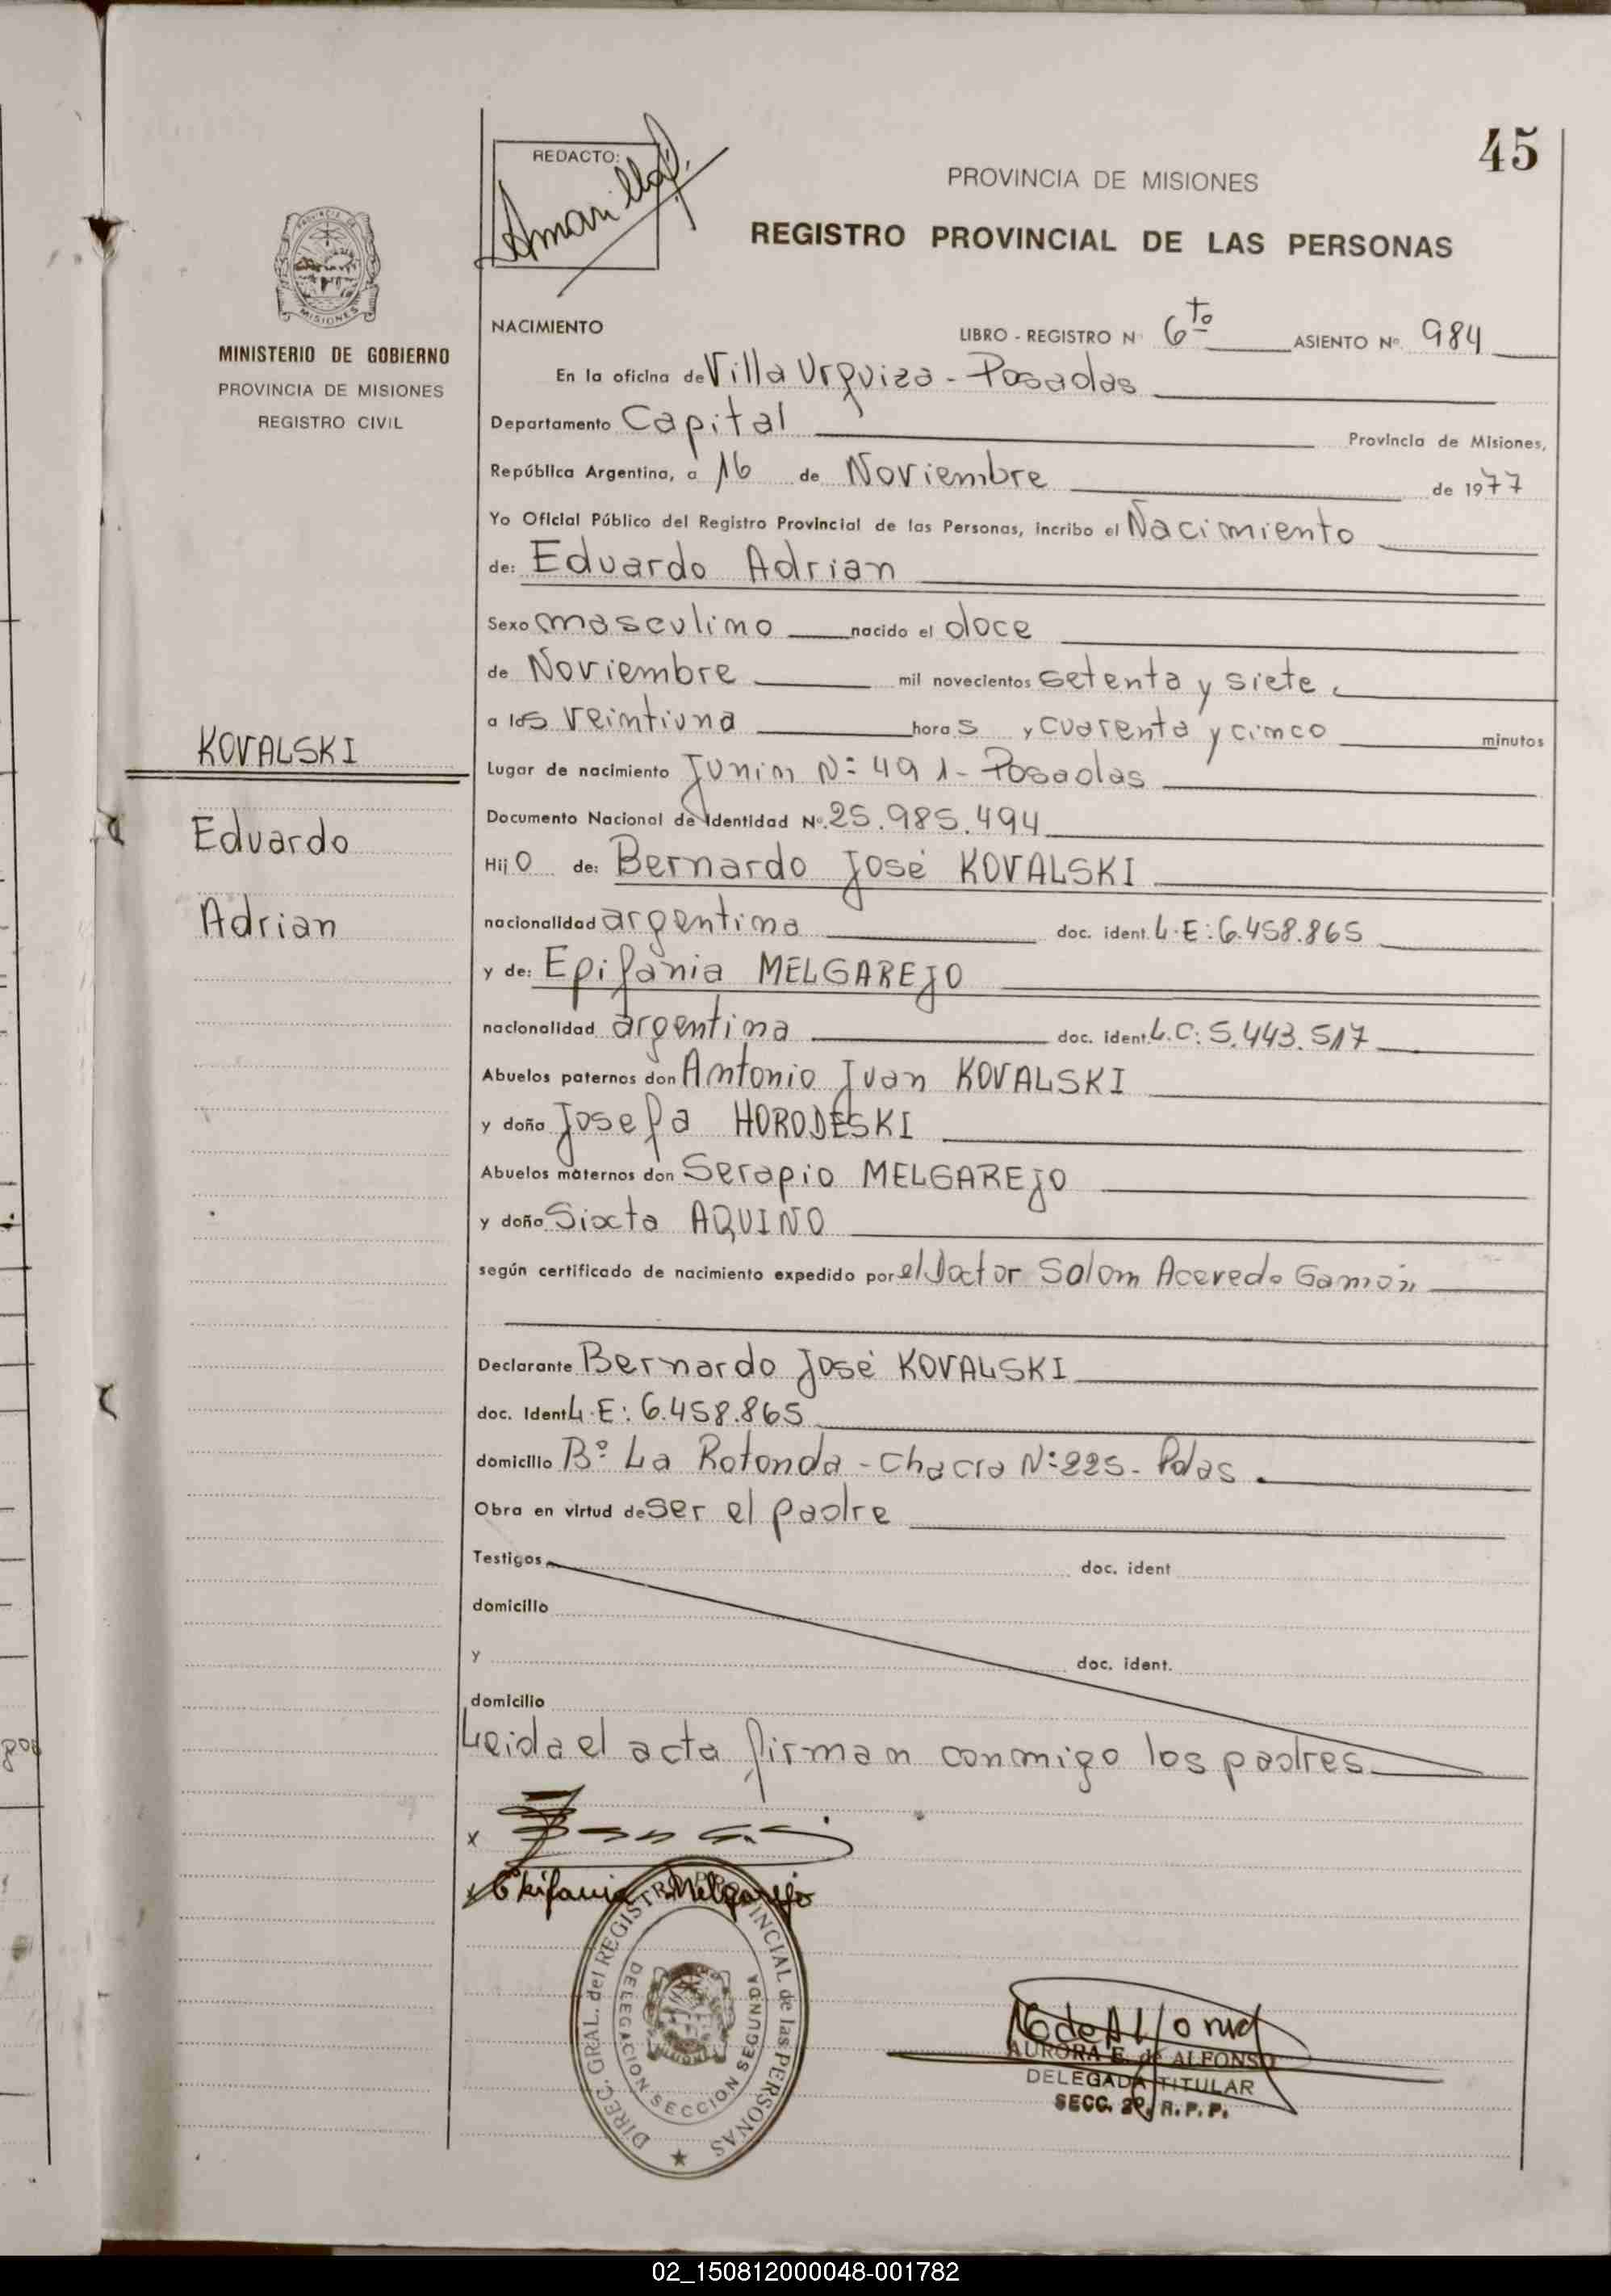 45
REDACTO:
PROVINCIA DE MISIONES
REGISTRO PROVINCIAL DE LAS PERSONAS
MINISTERIO DE GOBIERNO
PROVINCIA DE MISIONES
REGISTRO CIVIL
NACIMIENTO LIBRO - REGISTRO Nº 6to ASIENTO Nº 984
En la oficina de Villa Urquiza - Posadas
Departamento Capital Provincia de Misiones,
República Argentina, a 16 de Noviembre de 1977
Yo Oficial Público del Registro Provincial de las Personas, incribo el Nacimiento
de: Eduardo Adrian
Sexo masculino nacido el doce
de Noviembre mil novecientos setenta y siete
a las veintiuna horas y cuarenta y cinco minutos
KOVALSKI
Eduardo
Adrian
Lugar de nacimiento Junin Nº 491 - Posadas
Documento Nacional de Identidad Nº. 25.985.494
Hijo de: Bernardo José KOVALSKI
nacionalidad argentina doc. ident. L.E: 6.458.865
y de: Epifania MELGAREJO
nacionalidad argentina doc. ident. L.C: 5.443.517
Abuelos paternos don Antonio Juan KOVALSKI
y doña Josefa HORODESKI
Abuelos maternos don Serapio MELGAREJO
y doña Sixta AQUINO
según certificado de nacimiento expedido por el Doctor Salom Acevedo Gamón
Declarante Bernardo José KOVALSKI
doc. Ident L.E: 6.458.865
domicilio Bº La Rotonda - Chacra Nº 225 - Pdas.
Obra en virtud de ser el padre
Testigos doc. ident
domicilio
y doc. ident.
domicilio
Leida el acta firman conmigo los padres
x
x Epifania Melgarejo
DIREC. GRAL. del REGISTRO PROVINCIAL de las PERSONAS
DELEGACION SECCION SEGUNDA
AURORA E. de ALFONSO
DELEGADA TITULAR
SECC. 2ª R.P.P.
02_150812000048-001782